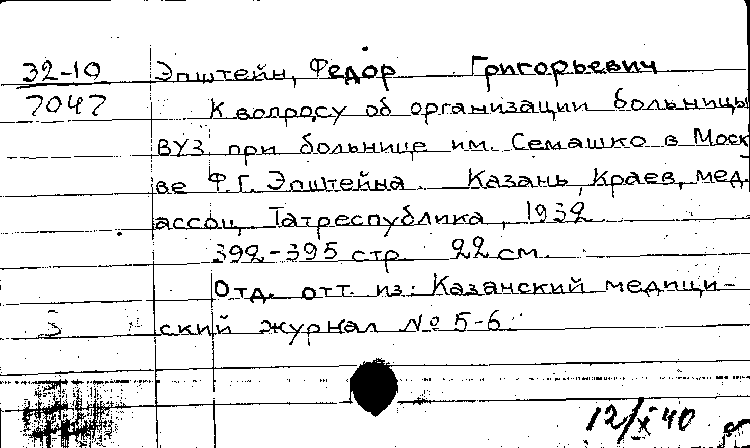 32-10
7047
Эпштейн, Федор Григорьевич
К вопросу об организации больницы
ВУЗ при больнице им. Семашко в Моск
ве Ф.Г. Эпштейна. Казань, Краев, мед.
ассоц. Татреспублика, 1932
392-395 стр. 22 см.
Отд. отт. из: Казанский медици-
ский журнал № 5-6.
12/X 40